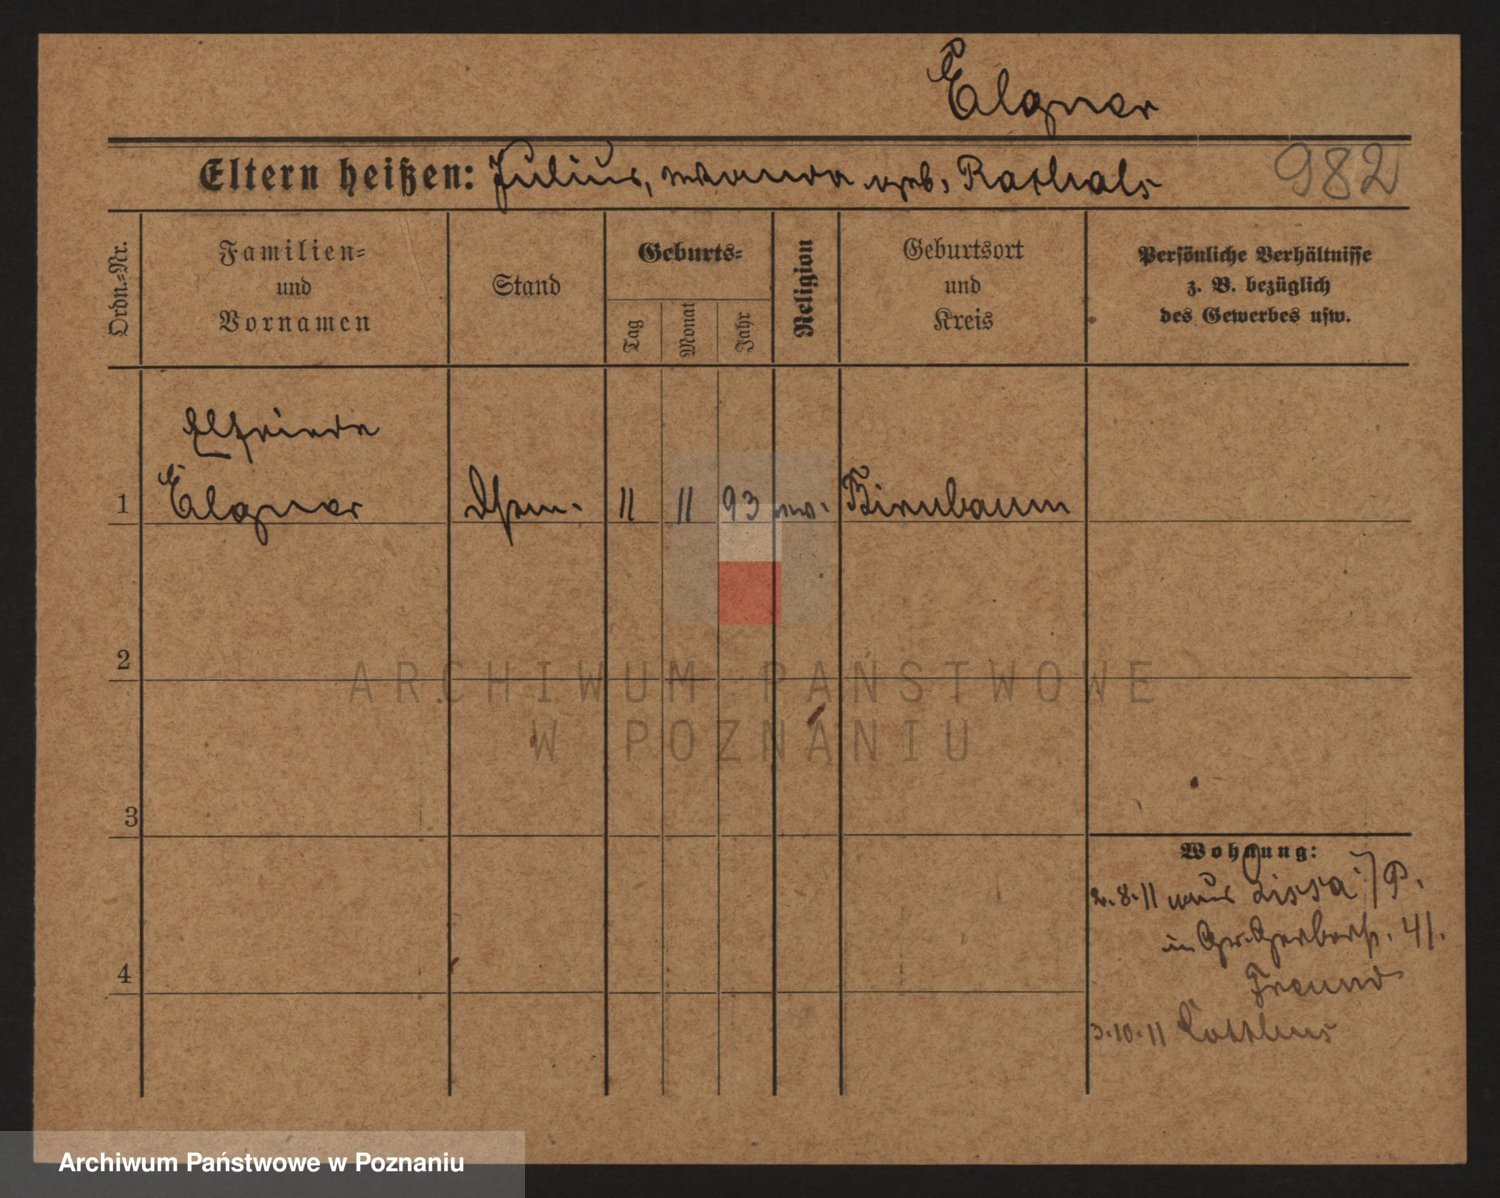 Elgner
Eltern heißen: Julius, Wanda geb. Rathals
982
Ordn.-Nr.
Familien-
und
Vornamen
Stand
Geburts-
Tag
Monat
Jahr
Religion
Geburtsort
und
Kreis
Persönliche Verhältnisse
z. B. bezüglich
des Gewerbes usw.
Elfriede
1 Elgner 11 11 93 Birnbaum
2
3
4
Wohnung:
2.8.11 aus Lissa i/P.
in Gr. Gerberst. 41.
Freund
3.10.11 Cottbus
ARCHIWUM PAŃSTWOWE
W POZNANIU
Archiwum Państwowe w Poznaniu